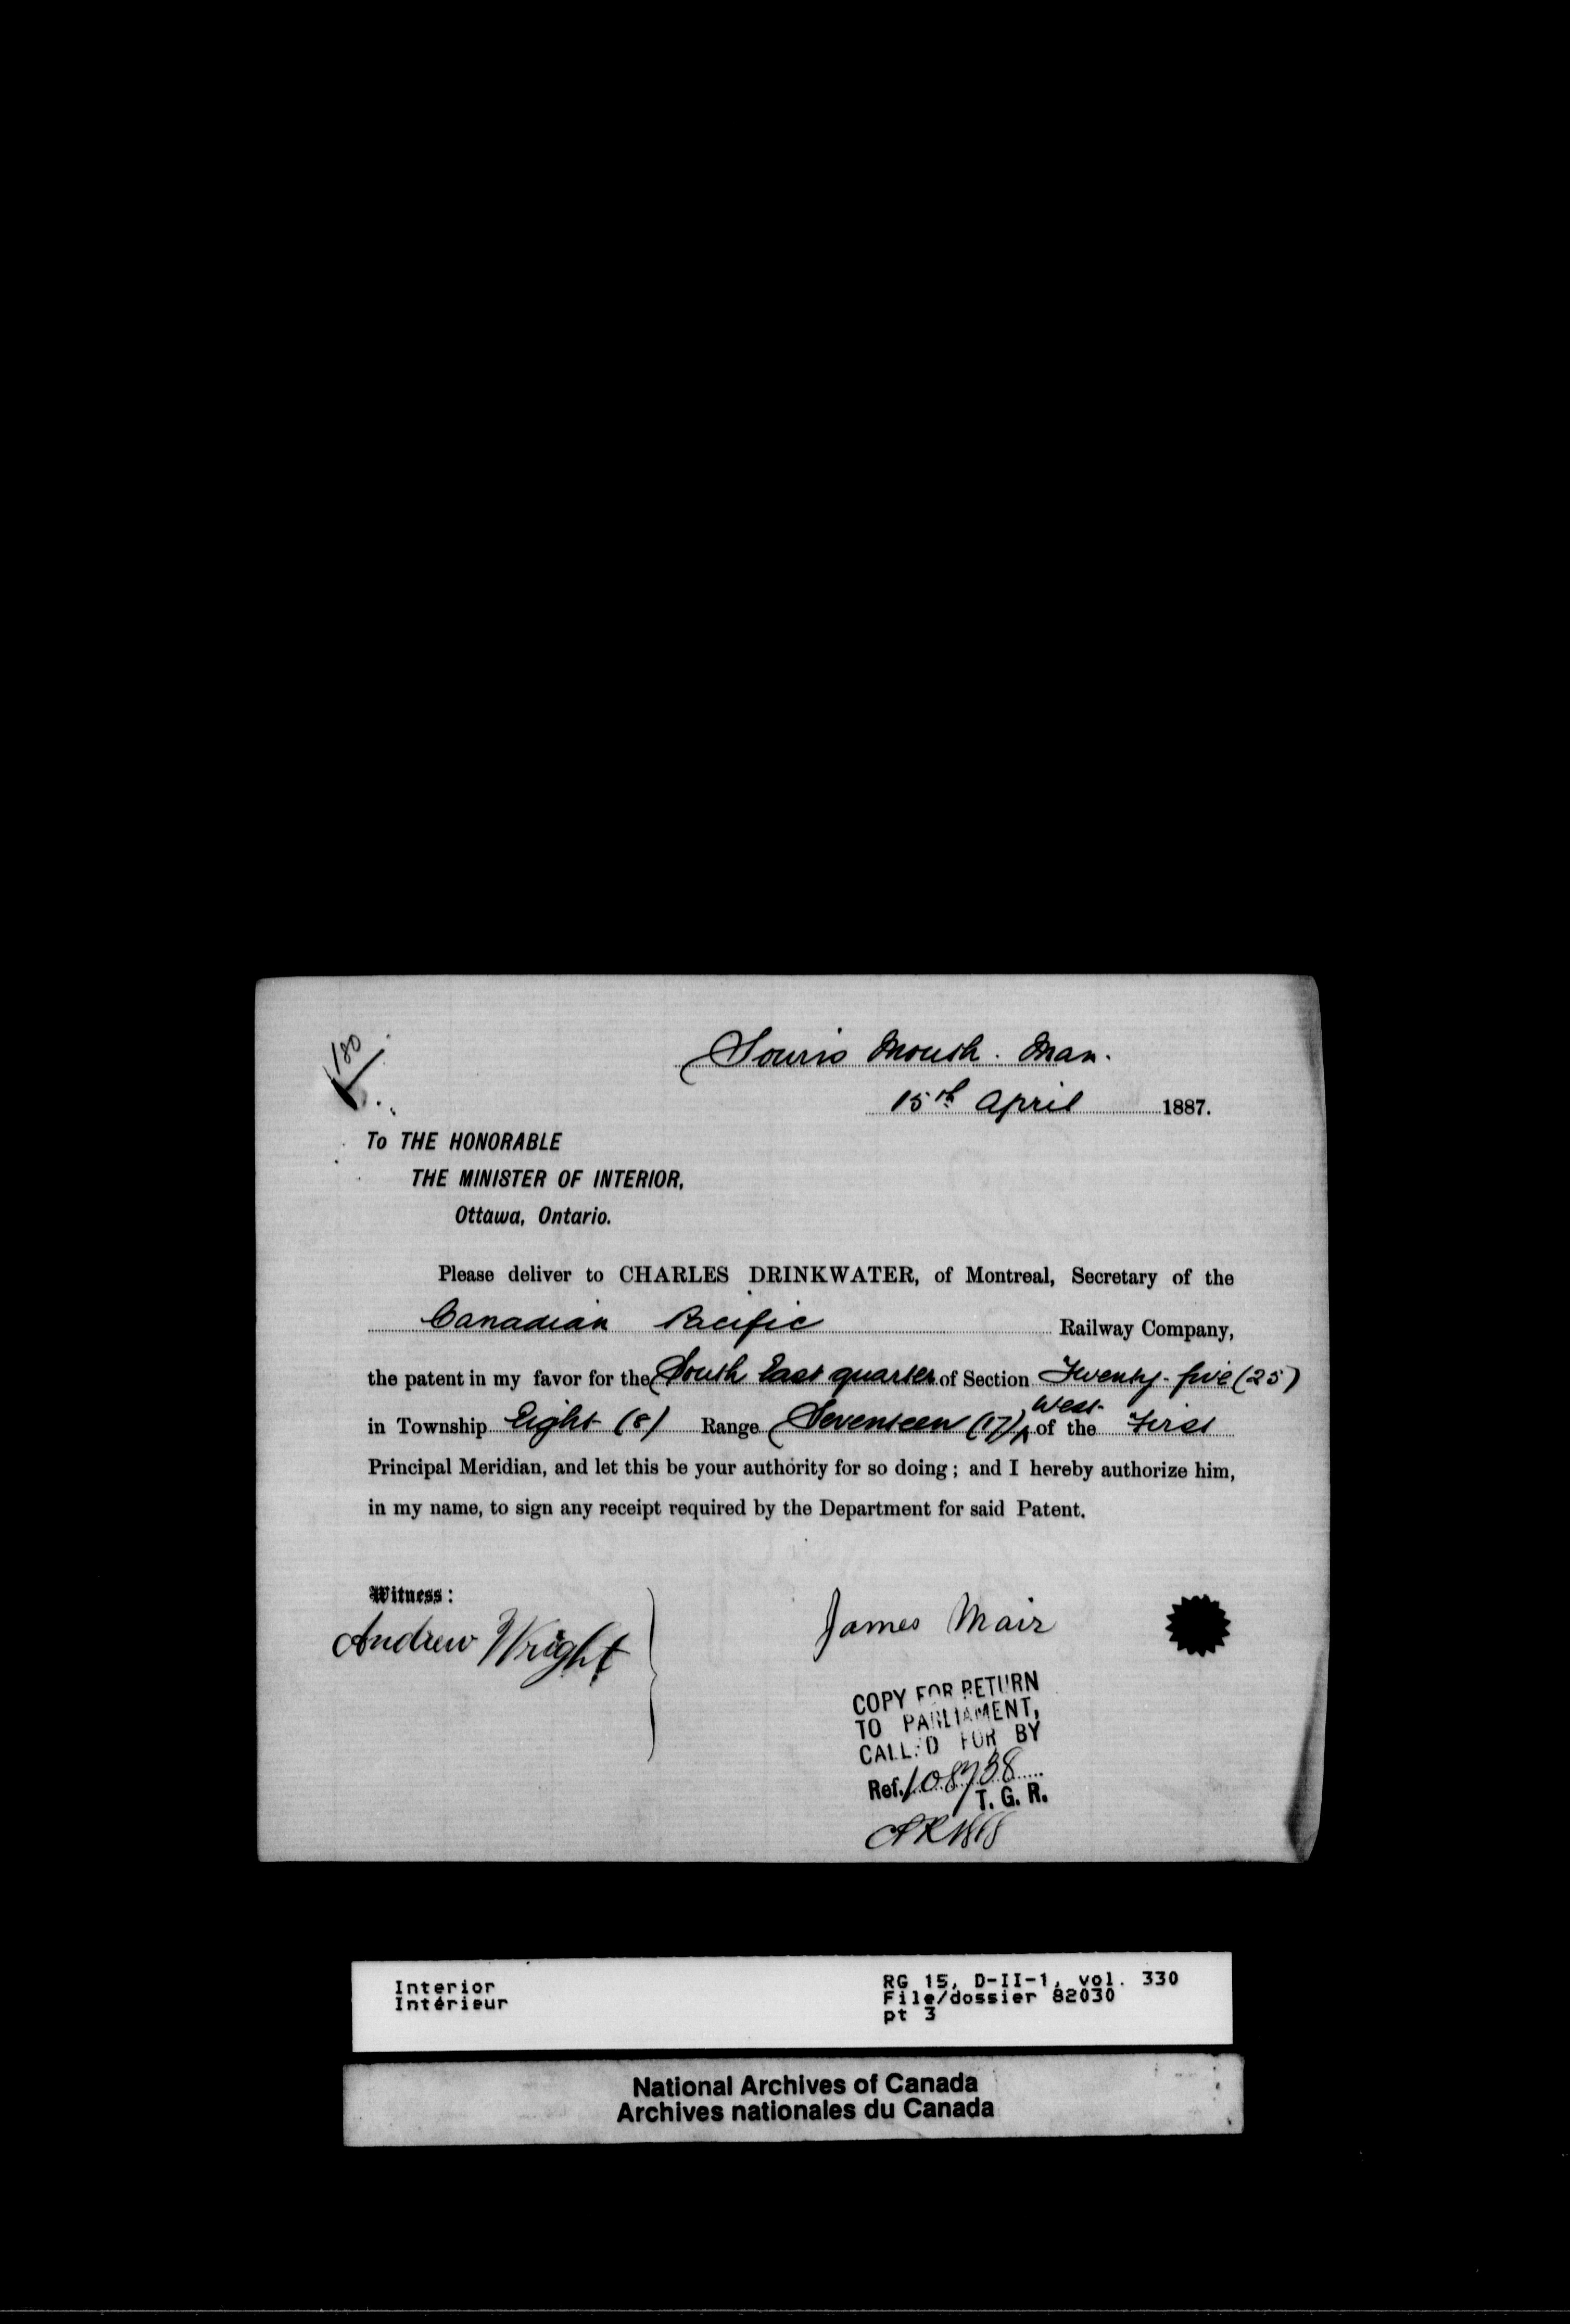 180
Souris Mouth. Man.
15th April 1887.
To THE HONORABLE
THE MINISTER OF INTERIOR,
Ottawa, Ontario.
Please deliver to CHARLES DRINKWATER, of Montreal, Secretary of the
Canadian Pacific Railway Company,
the patent in my favor for the South East quarter of Section Twenty-five (25)
in Township Eight (8) Range Seventeen (17) West of the First
Principal Meridian, and let this be your authority for so doing; and I hereby authorize him,
in my name, to sign any receipt required by the Department for said Patent.
Witness:
Andrew Wright
James Mair
COPY FOR RETURN
TO PARLIAMENT,
CALLED FOR BY
Ref. 108738
T. G. R.
Interior
Intérieur
RG 15, D-II-1, vol. 330
File/dossier 82030
pt 3
National Archives of Canada
Archives nationales du Canada